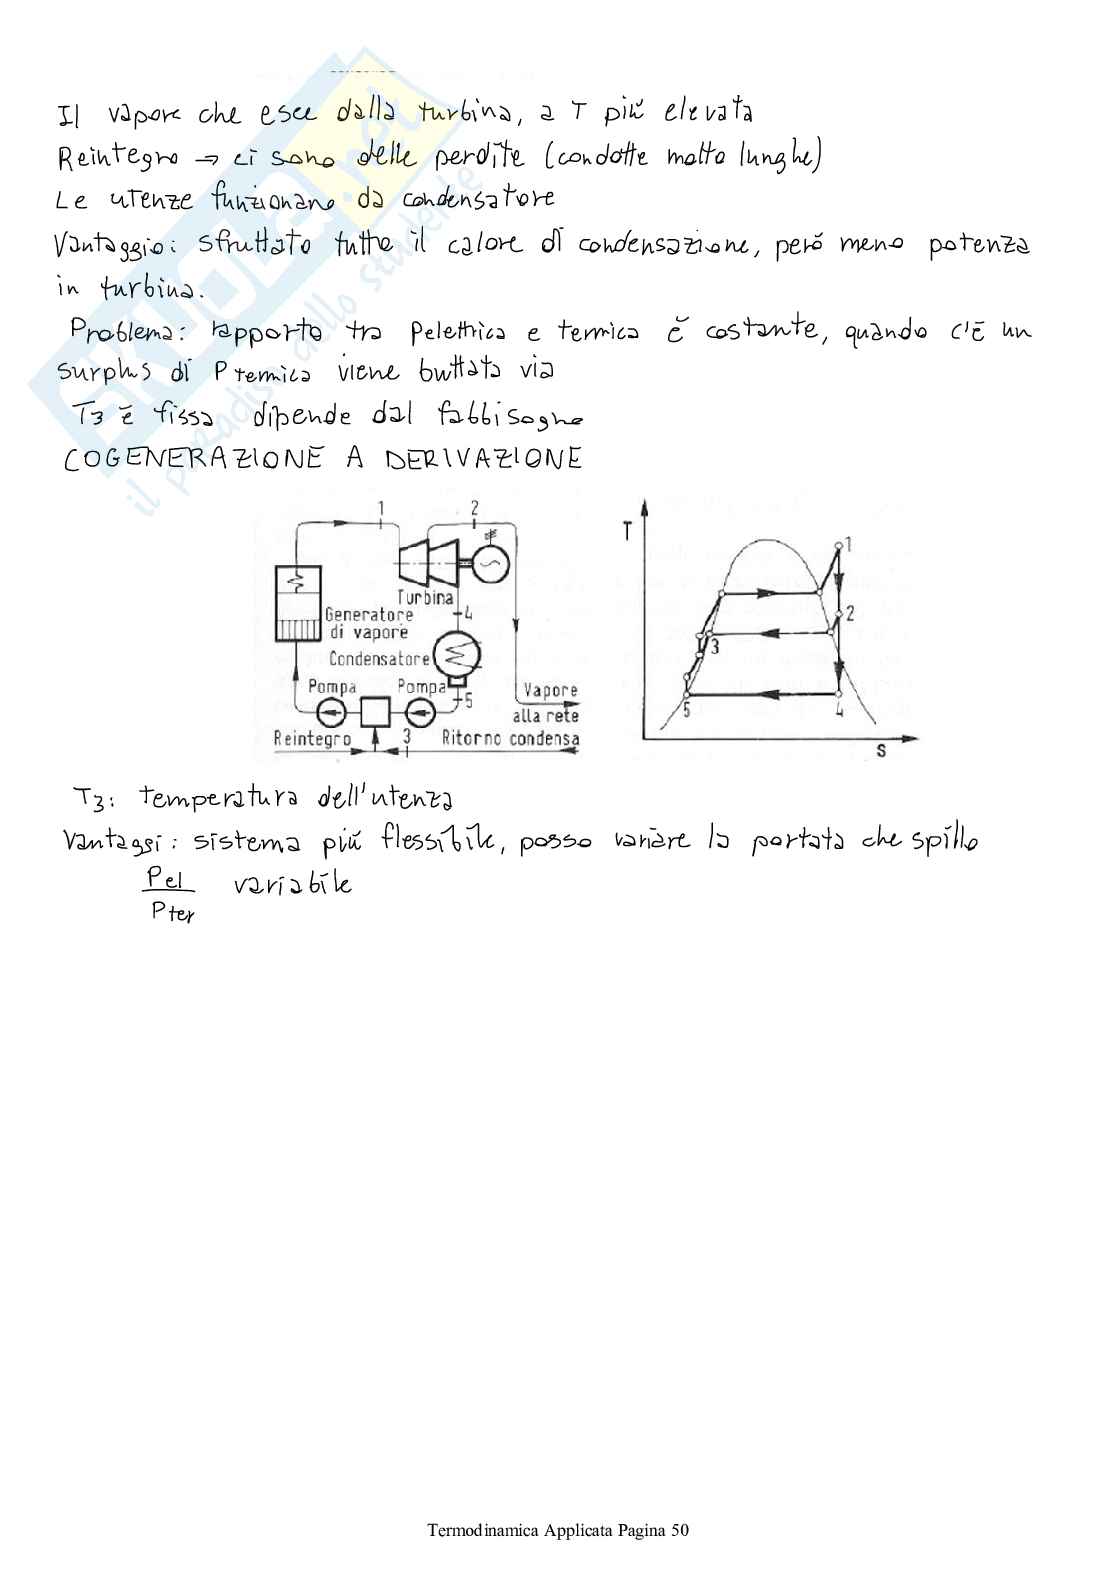 Il vapore che esce dalla turbina, a T più elevata
Reintegro → ci sono delle perdite (condotte molto lunghe)
Le utenze funzionano da condensatore
Vantaggio: sfruttato tutto il calore di condensazione, però meno potenza
in turbina.
Problema: rapporto tra Pelettrica e termica è costante, quando c'è un
surplus di P termica viene buttata via
T3 è fissa dipende dal fabbisogno
COGENERAZIONE A DERIVAZIONE
1 2
Turbina
4
Generatore
di vapore
Condensatore
Pompa Pompa
5
Vapore
alla rete
Reintegro 3 Ritorno condensa
T
1
2
3
5 4
S
T3: temperatura dell'utenza
Vantaggi: sistema più flessibile, posso variare la portata che spillo
Pel variabile
Pter
Termodinamica Applicata Pagina 50
SKUOLA.net
il paradiso dello studente